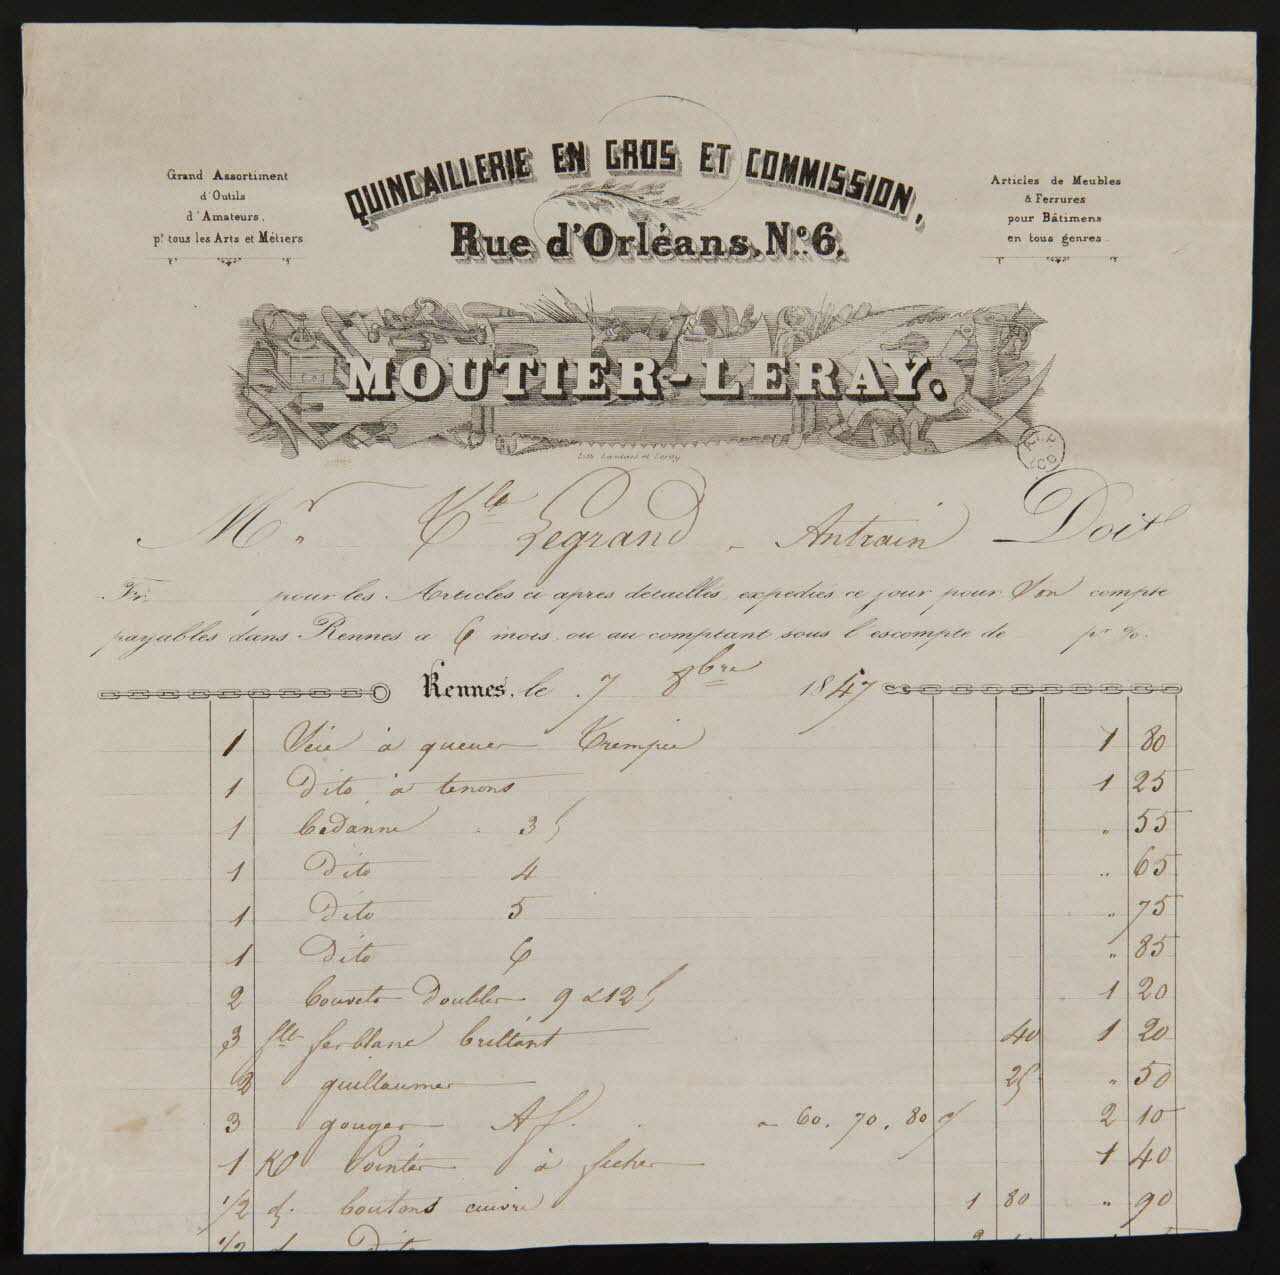 QUINCAILLERIE EN GROS ET COMMISSION,
Rue d'Orléans, N.º 6.
Grand Assortiment
d'Outils
d'Amateurs,
pr tous les Arts et Métiers
Articles de Meubles
& Ferrures
pour Bâtimens
en tous genres
MOUTIER-LERAY.
Lith. Landais et Leroy
Mr Legrand - Antrain Doit
pour les Articles ci après détaillés, expédiés ce jour pour Son compte
payables dans Rennes à 6 mois, ou au comptant sous l'escompte de pr %.
Rennes, le 7 8bre 1847
1 Scie à queue Trempée 1 80
1 Dito à tenons 1 25
1 Bédanne 3 " 55
1 Dito 4 " 65
1 Dito 5 " 75
1 Dito 6 " 85
2 Bouvets Doubles 9 & 12 1 20
3 flles fer blanc brillant 40 1 20
2 guillaumes 25 " 50
3 gouges Af. a 60. 70. 80 2 10
1 Ko Pointes à ficher 1 40
1/2 d. boutons cuivre 1 80 " 90
1/2 d. Dito 2